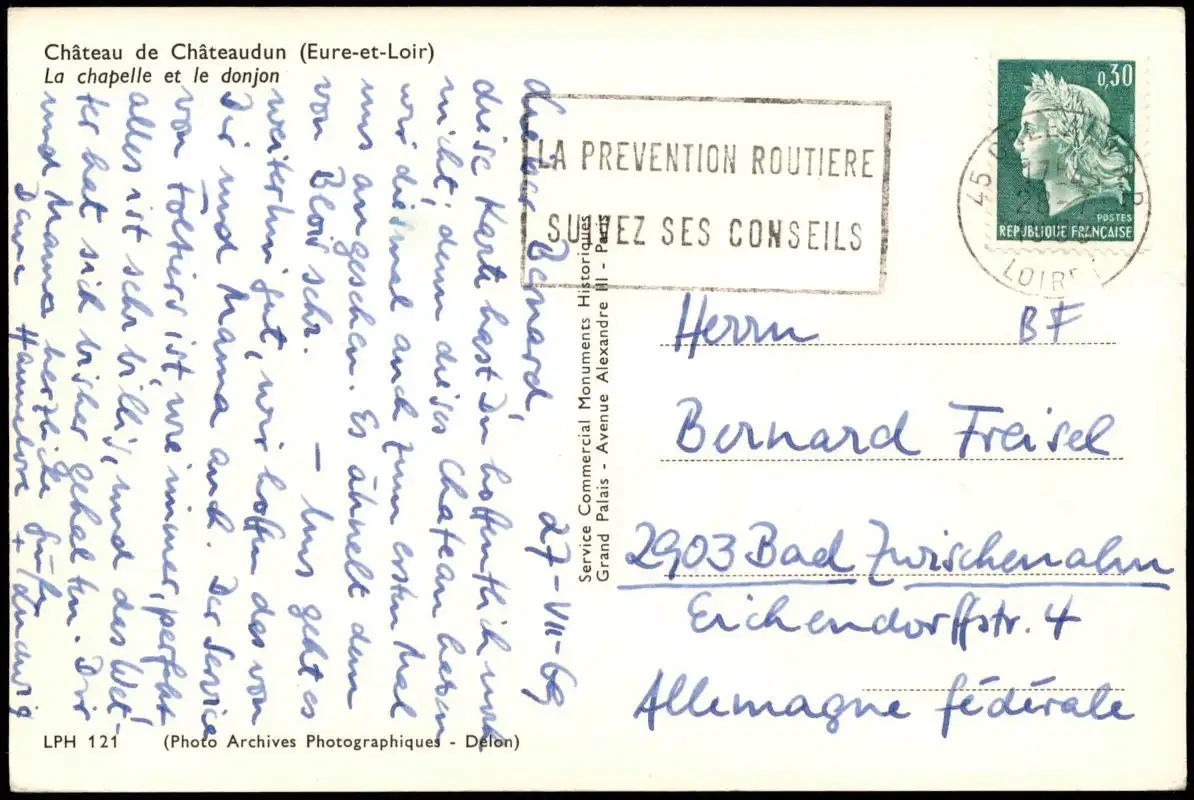 Château de Châteaudun (Eure-et-Loir)
La chapelle et le donjon
27-VII-69
Lieber Bernard,
diese Karte hast Du hoffentlich noch
nicht, denn dieses Chateau haben
wir diesmal auch zum ersten Mal
uns angesehen. Es ähnelt dem
von Blois sehr. – Uns geht es
weiterhin gut, wir hoffen das von
Dir und Mama auch. Der Service
von Foltiers ist, wie immer, perfekt
alles ist sehr billig, und das Wet-
ter hat sich bisher gehalten. Dir
und Mama herzliche Grüße
Deine Hannelore + Ludwig
LPH 121 (Photo Archives Photographiques - Delon)
Service Commercial Monuments Historiques
Grand Palais - Avenue Alexandre III - Paris
LA PREVENTION ROUTIERE
SUIVEZ SES CONSEILS
0,30
POSTES
REPUBLIQUE FRANÇAISE
45
LOIRET
Herrn BF
Bernard Freisel
2903 Bad Zwischenahn
Eichendorffstr. 4
Allemagne fédérale